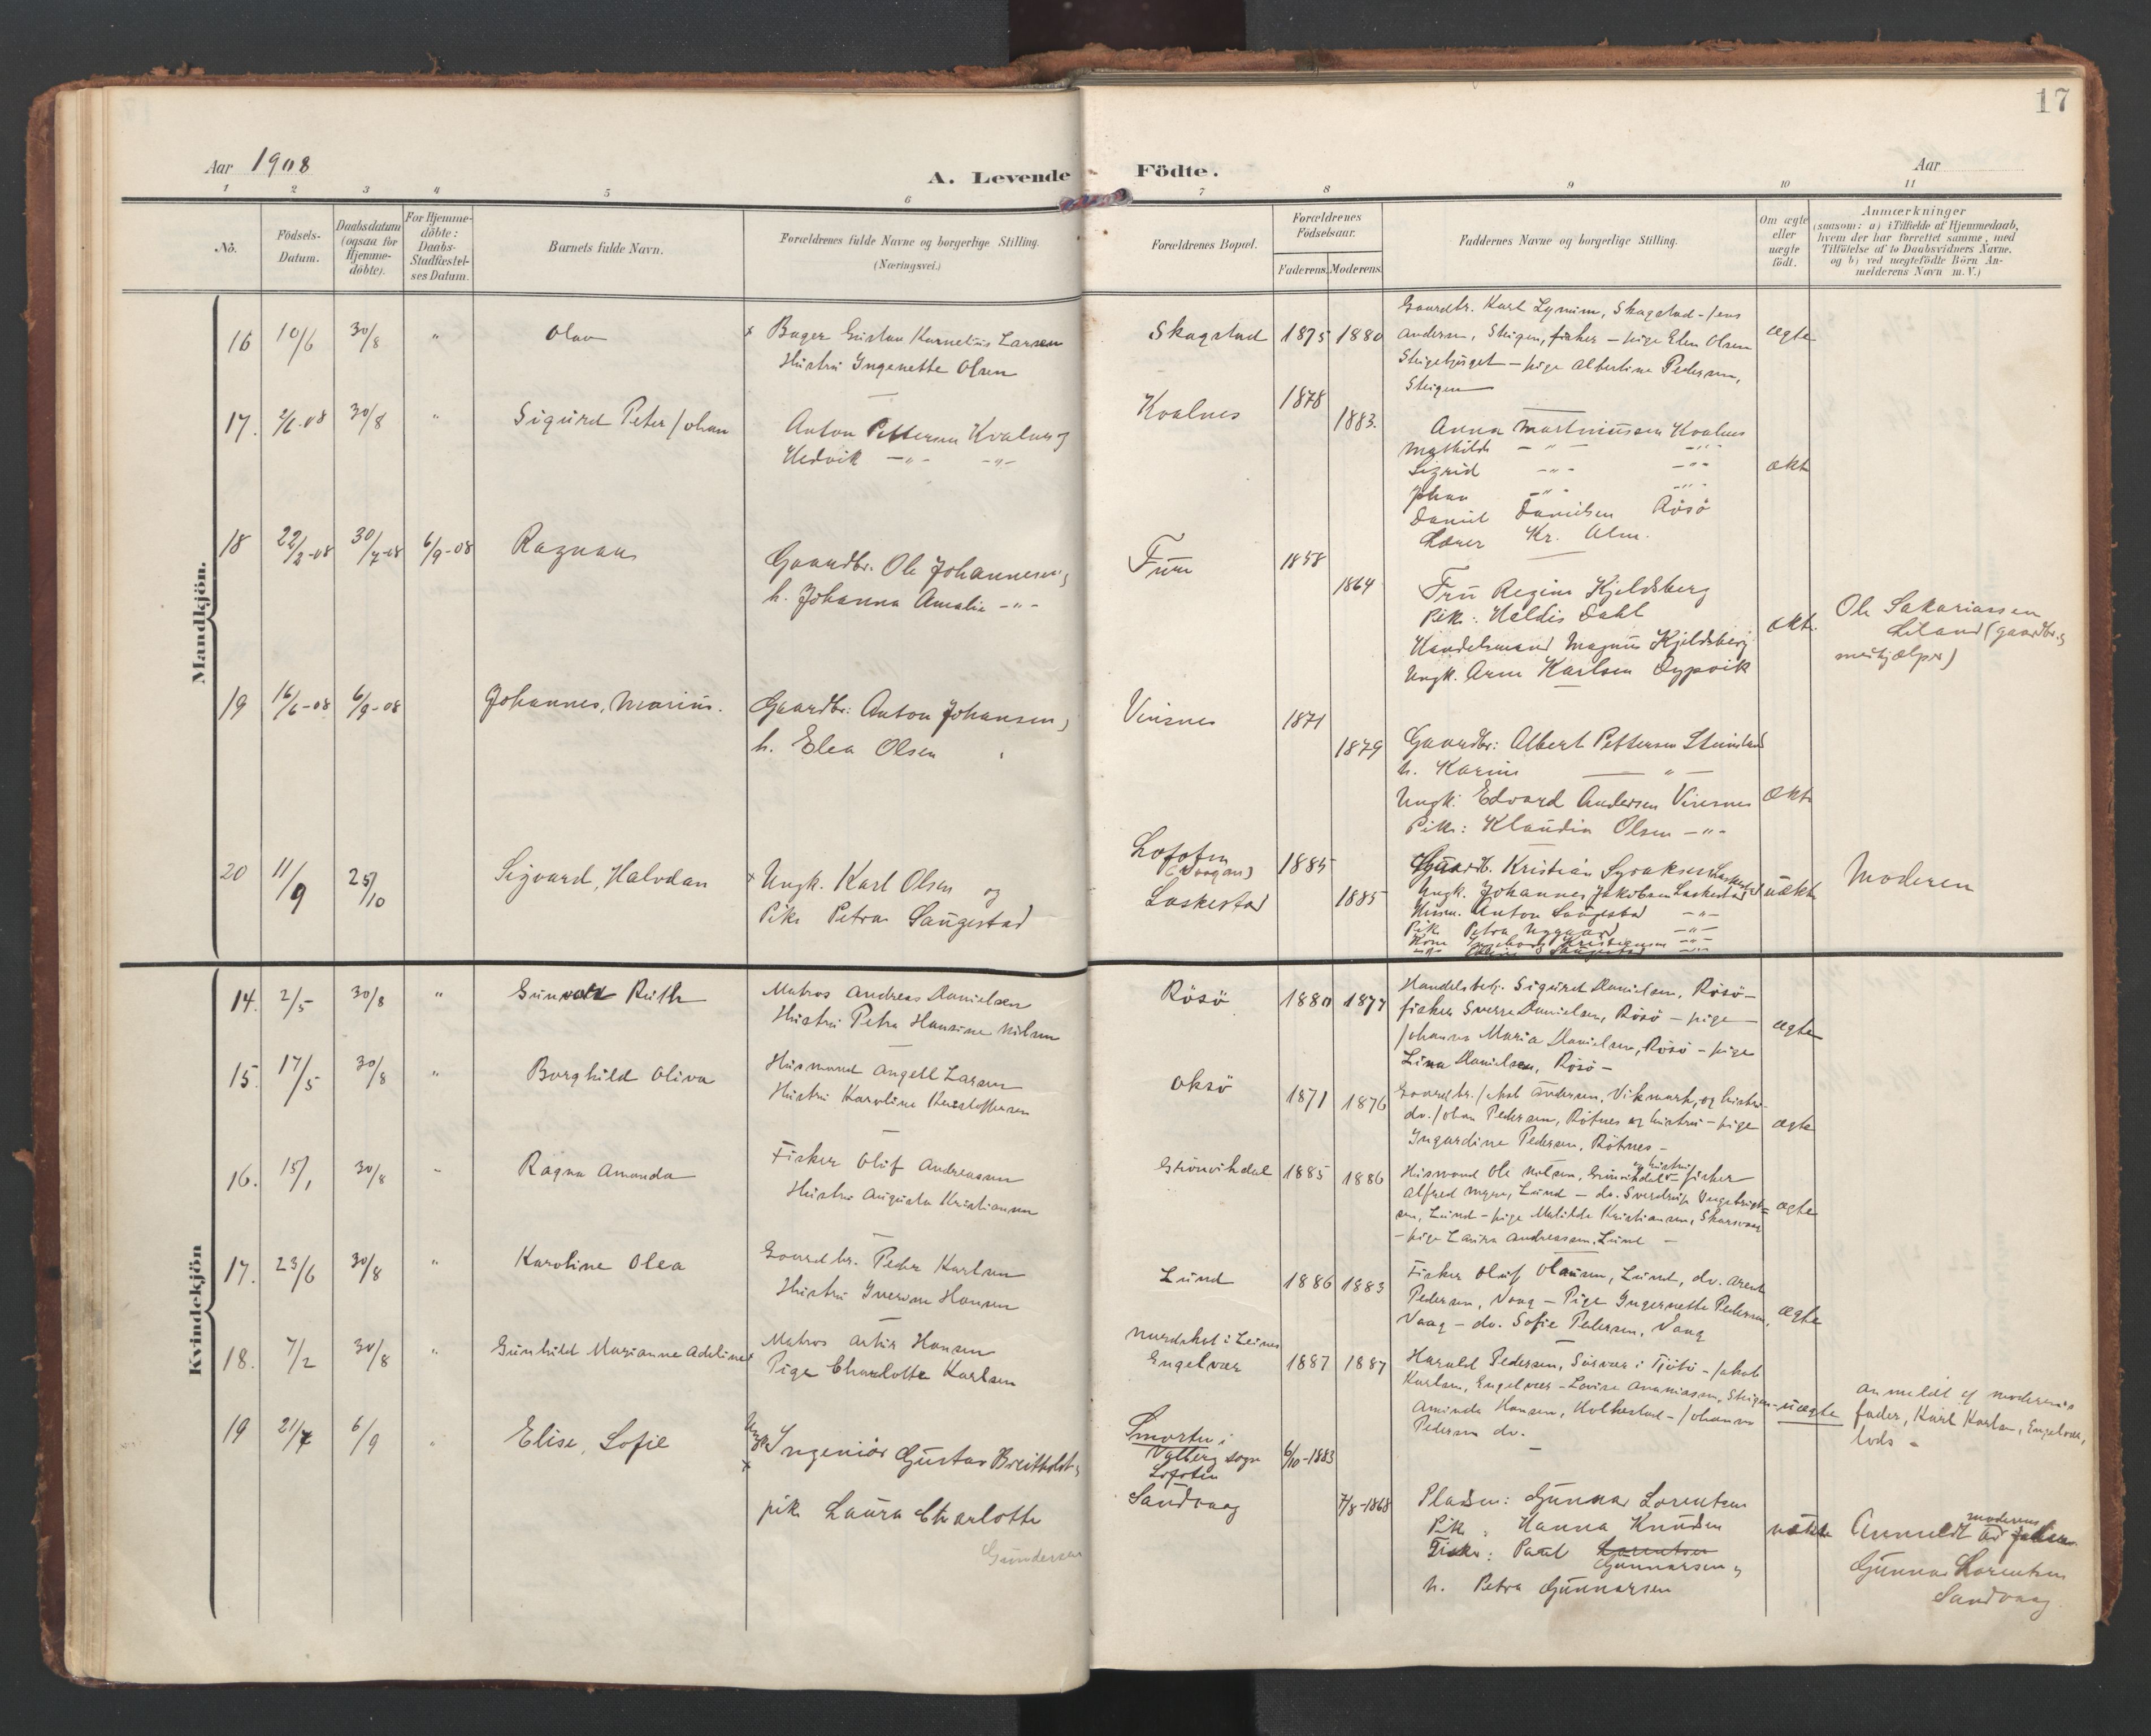 17
Aar 1908
A. Levende Födte.
Aar
1 2 3 4 5 6 7 8 9 10 11
No.
Födsels-
Datum.
Daabsdatum
(ogsaa for
Hjemme-
döbte).
For Hjemme-
döbte:
Daabs-
Stadfæstel-
ses Datum.
Barnets fulde Navn.
Forældrenes fulde Navne og borgerlige Stilling.
(Næringsvei.)
Forældrenes Bopæl.
Forældrenes
Födselsaar.
Faderens. Moderens.
Faddernes Navne og borgerlige Stilling.
Om ægte
eller
uægte
födt.
Anmærkninger
(saasom: a) i Tilfælde af Hjemmedaab,
hvem der har forrettet samme, med
Tilföielse af to Daabsvidners Navne.
og b) ved uægtefödte Börn An-
melderens Navn m. V.)
Mandkjön.
16 10/6 30/8 " Olav
x Bager Gustav Kornelius Larsen
Hustru Ingenette Olsen
Skagstad 1875 1880
Gaardbr. Karl Lynum, Skagstad - Jens
Andersen, Steigen, fisker - pige Elen Olsen
Steigebjerget - pige Albertine Pedersen,
Steigen
ægte
17. 2/6-08 30/8 " Sigurd Peter Johan
Anton Pettersen Kvalnes og
Hedvik -"- -"-
Kvalnes 1878 1883.
Anna Martinussen Kvalnes
Mathilde -"- -"-
Sigrid -"- -"-
Johan -"- -"-
Daniel Danielsen Rösö
Lærer Kr. Alm.
ekte
18 22/2-08 30/7-08 6/9-08 Ragnar
Gaardbr. Ole Johannesen og
h. Johanna Amalie -"-
Furu 1858 1864
Fru Regine Kjeldsberg
Pike: Haldis Dahl
Handelsmand Magnus Kjeldsberg
Ungk. Arne Karlsen Dypvik
ekte.
Ole Sakariassen
Leland (gaardbr. og
medhjælper)
19 16/6-08 6/9-08 Johannes, Marius.
Gaardbr: Anton Johansen og
h. Elea Olsen
Vinsnes 1871 1879
Gaardbr: Albert Pettersen Steinstad
h. Karine -"-
Ungk: Edvard Andersen Vinsnes
Pike: Klaudia Olsen -"-
Ekte
20 11/9 25/10 Sigvard, Halvdan
x Ungk. Karl Olsen og
Pike Petra Saugestad
Lofoten
(Vaagan)
Laskestad
1885 1885
Gaardb. Kristian Syvaksen Laskestad
Ungk. Johannes Jakobsen Laskestad
Husm. Anton Saugestad -"-
Pike Petra Nygaard -"-
Kone Ingeborg Kristiansen -"-
uekte
Moderen
Kvindekjön
14. 2/5 30/8 " Gunvor Ruth
Matros Andreas Danielsen
Hustru Petra Hansine Nilsen
Rösö 1880 1877
Handelsbetj. Sigurd Danielsen, Rösö -
fisker Sverre Danielsen, Rösö - pige
Johanna Maria Danielsen, Rösö - pige
Lina Danielsen, Rösö -
ægte
15. 17/5 30/8 " Borghild Oliva
Husmand Angell Larsen
Hustru Karoline Kristoffersen
Oksö 1871 1876
Gaardbr. Jakob Andersen, Vikmark, og hustru -
do. Johan Pedersen, Rötnes og hustru - pige
Ingardine Pedersen, Rötnes -
ægte
16. 15/1 30/8 " Ragna Amanda
Fisker Oluf Andreassen
Hustru Augusta Kristiansen
Grönvikdal 1885 1886
Husmand Ole Nilsen, Grönvikdal og hustru - fisker
Alfred Myre, Lund - do. Sverdrup Ingebrigt-
sen, Lund - pige Matilde Kristiansen, Skarsvaag
- pige Laura Andreassen, Lund -
ægte
17. 23/6 30/8 " Karoline Olea
Gaardbr. Peder Karlsen
Hustru Hansen
Lund 1886 1883
Fisker Oluf Olausen, Lund, do. Arent
Pedersen, Vaag - Pige Ingernette Pedersen,
Vaag - do. Sofie Pedersen, Vaag
ægte
18. 7/2 30/8 " Gunhild Marianne Adeline
x Matros Artur Hansen
Pige Charlotte Karlsen
Nordskot i Leines
Engelvær
1887 1887
Harald Pedersen, Sörvær i Tjötö - Jakob
Karlsen, Engelvær - Lovise Ananiassen, Steigen -
Aminda Hansen, Holkestad - Johanna
Pedersen do.
uægte
Anmeldt af moderens
fader, Karl Karlsen, Engelvær,
lods -
19 21/7 6/9 " Elise, Sofie
Ungk.
x Ingeniör Gustav Breitholtz og
pike Laura Charlotte
Gundersen
Smorten i
Valberg sogn
Lofoten
Sandvaag
6/10-1883 7/8-1868
Pladsm: Gunnar Lorentsen
Pike: Hanna Knudsen
Fisker: Paul Lorentsen
Gunnarsen og
h. Petra Gunnarsen
uekte
Anmeldt av moderens fader
Gunnar Lorentsen
Sandvaag